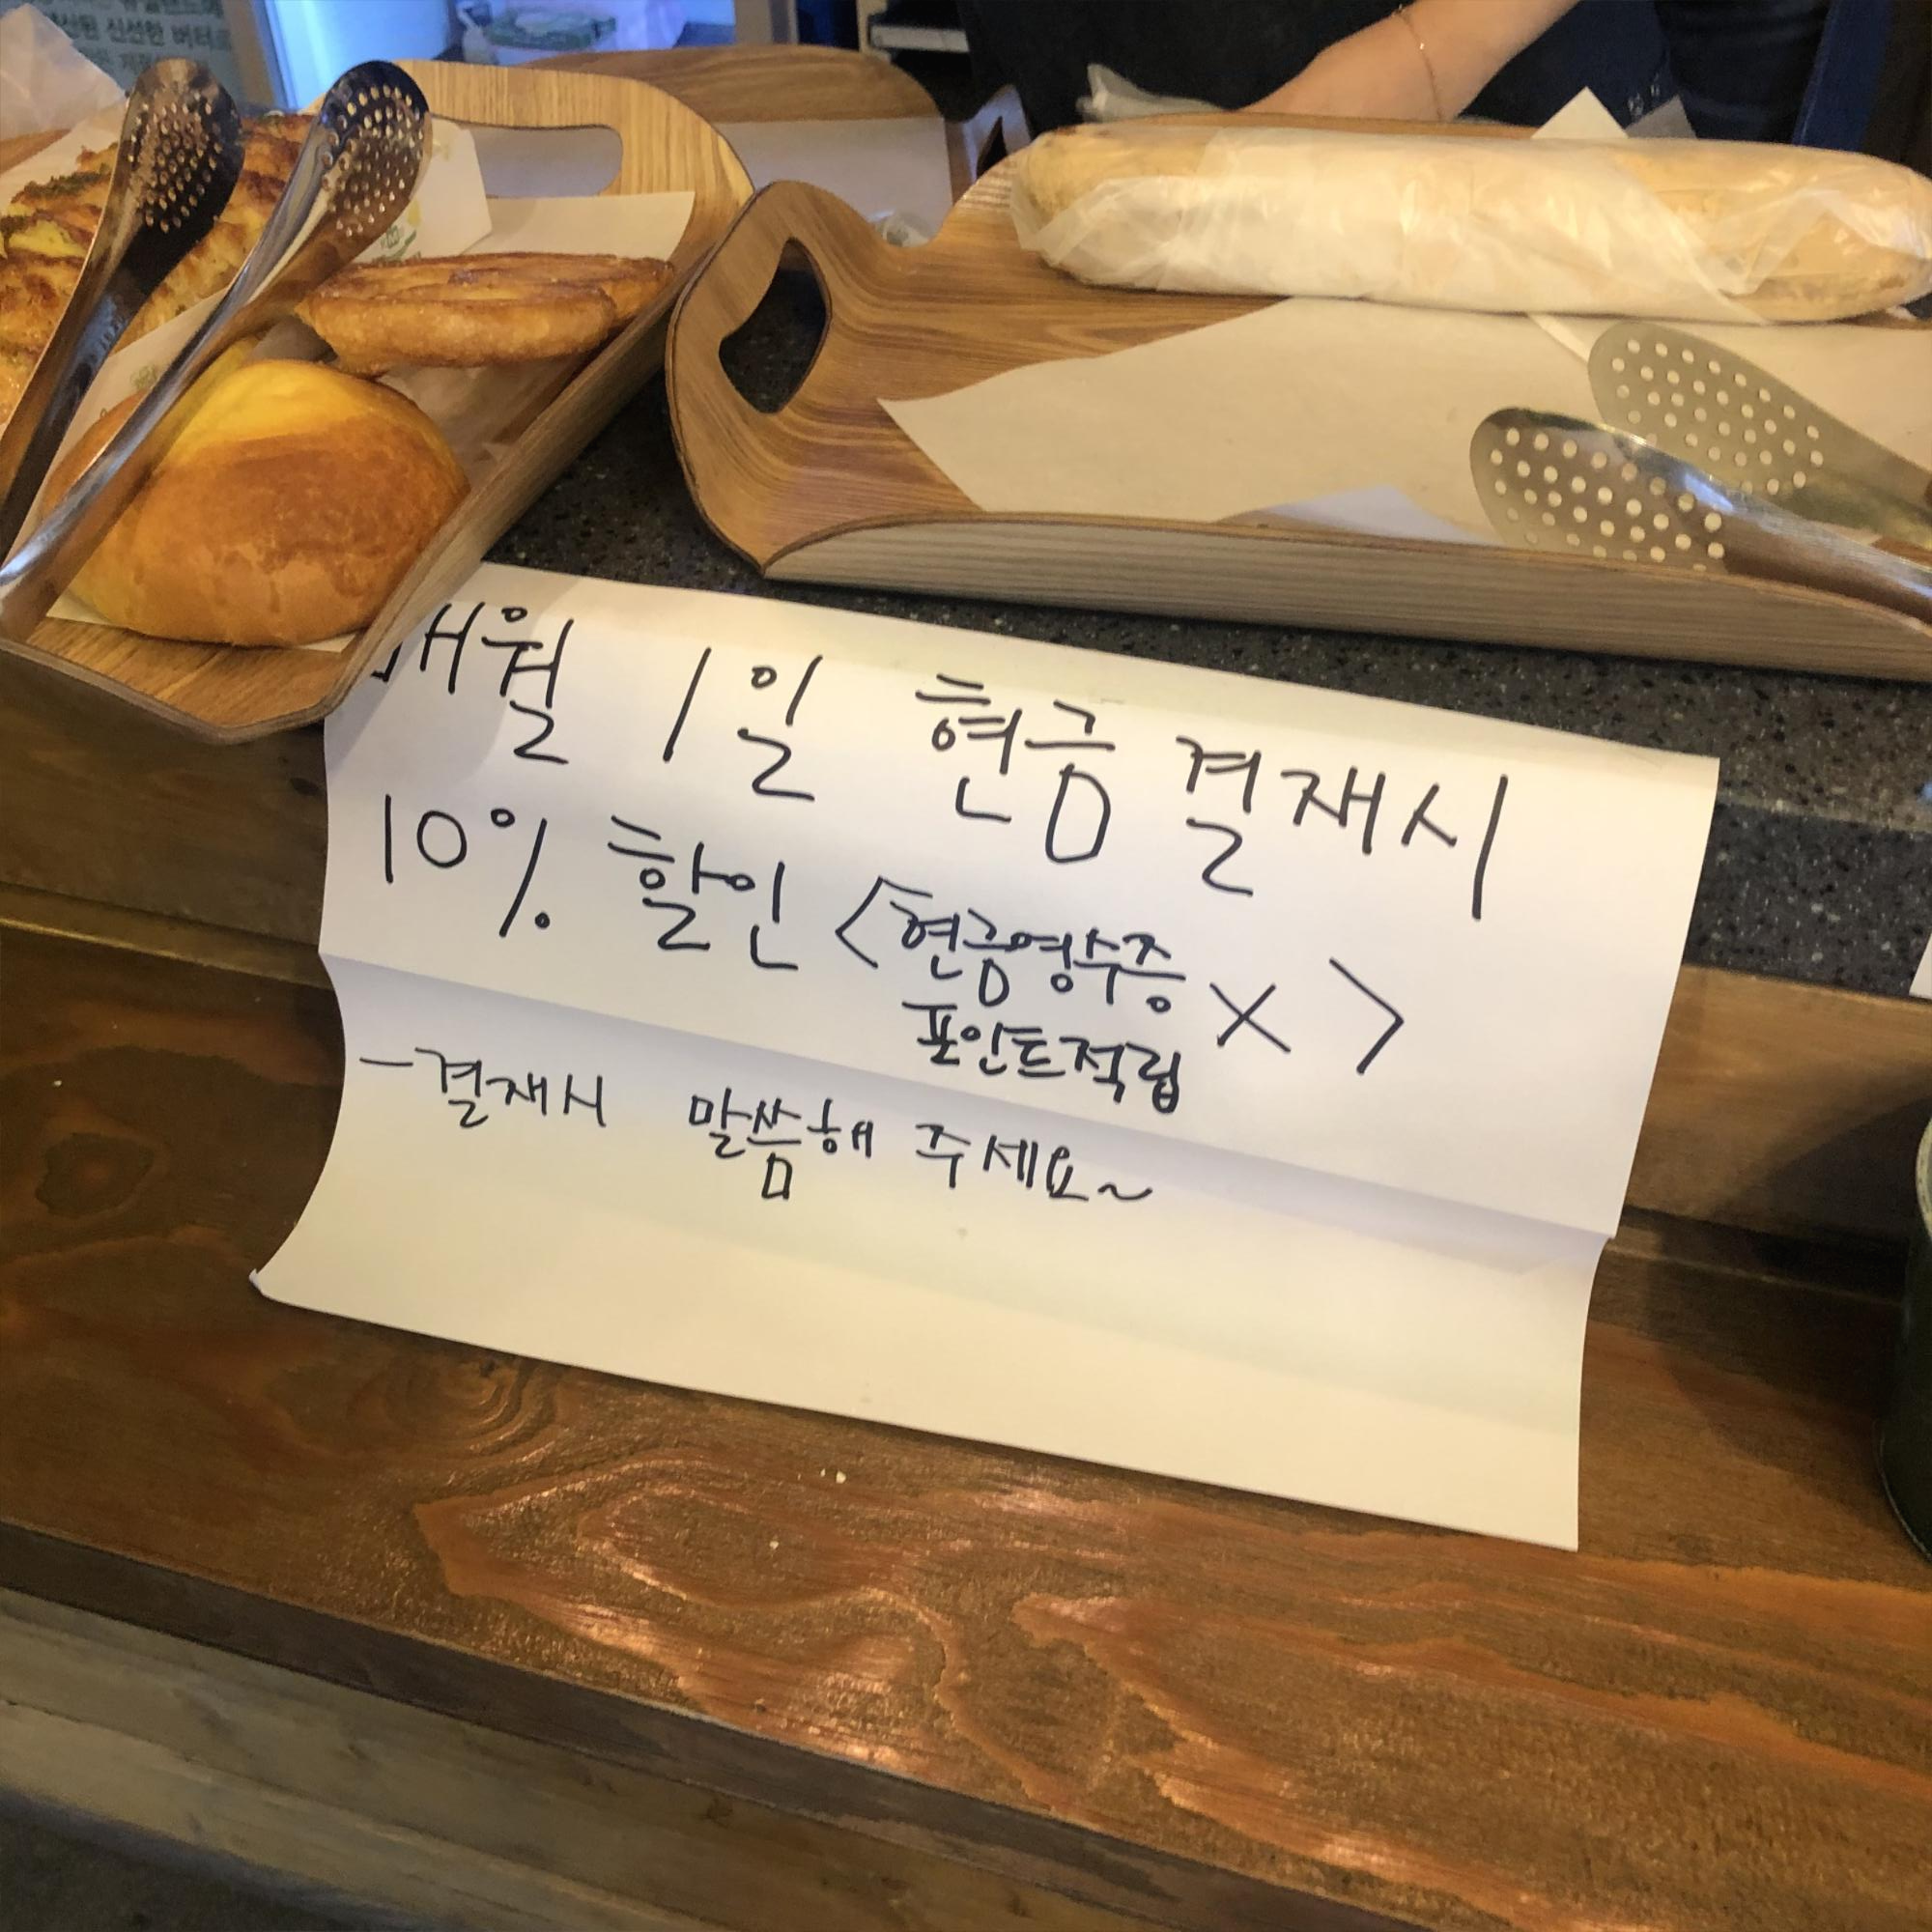 신선한 버터
매월 1일 현금 결재시
10% 할인 <현금영수증 X >
포인트적립
-결재시 말씀해 주세요~